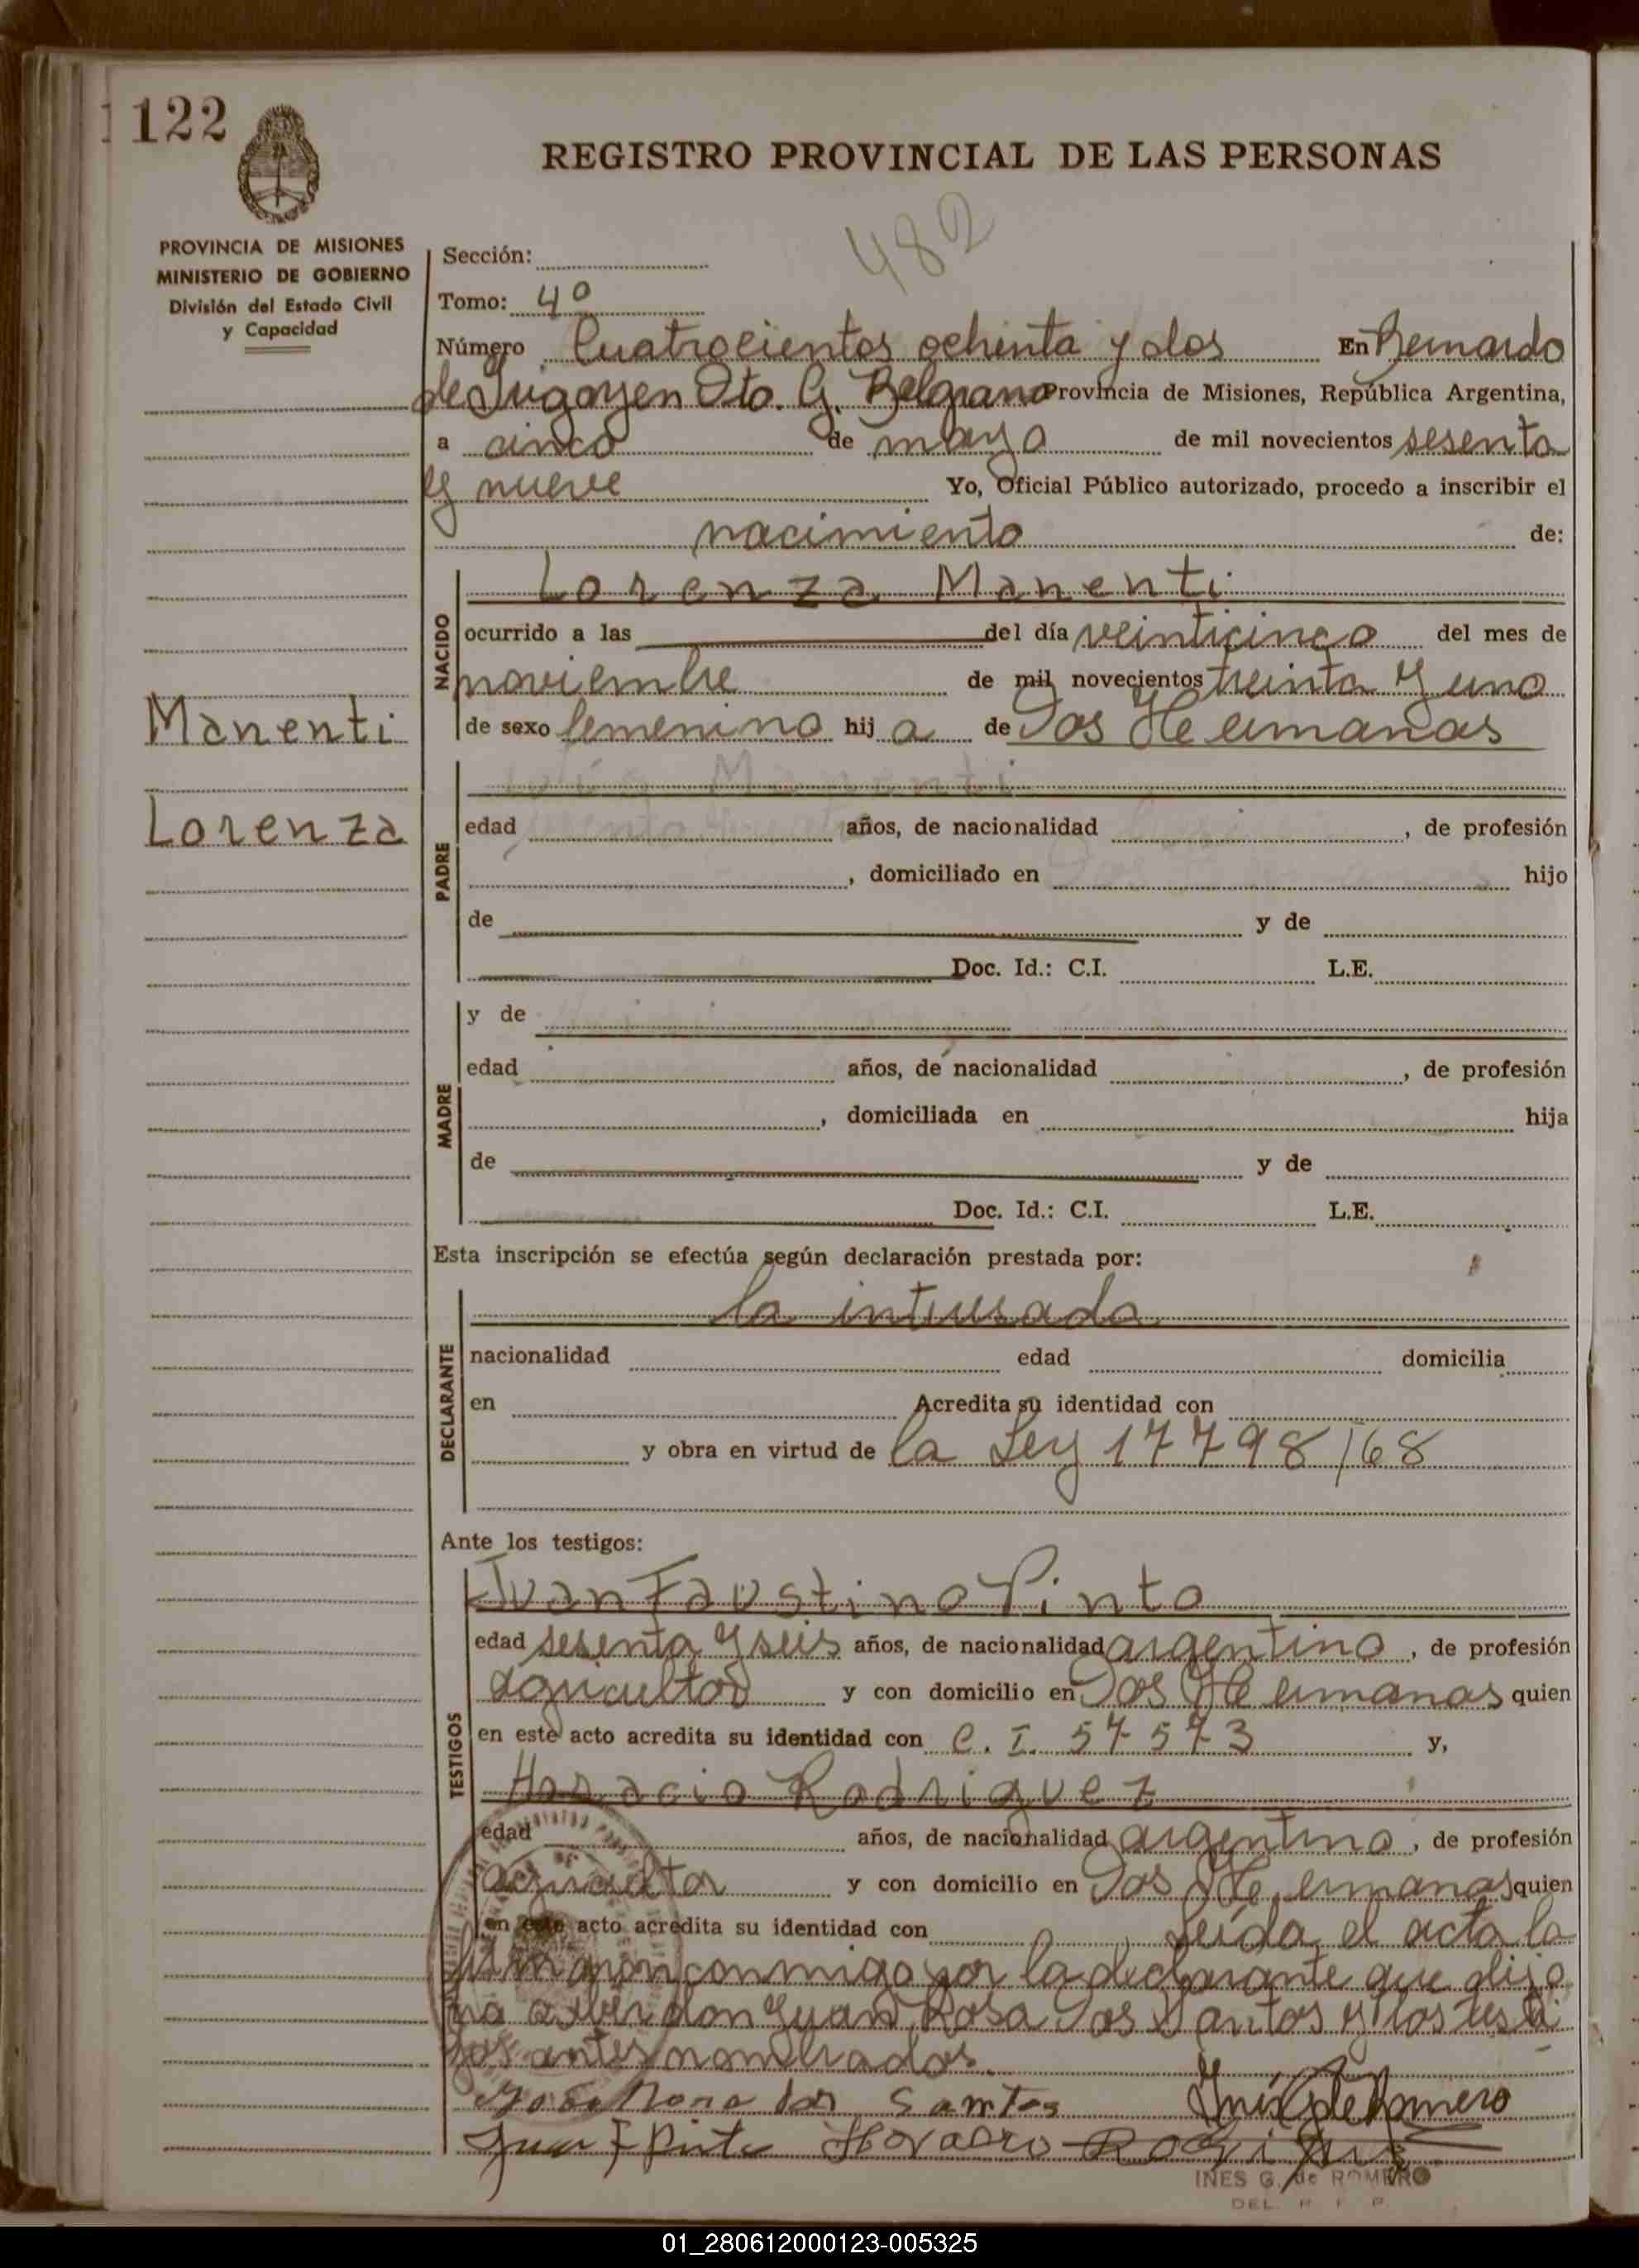 122
REGISTRO PROVINCIAL DE LAS PERSONAS
482
PROVINCIA DE MISIONES
MINISTERIO DE GOBIERNO
División del Estado Civil
y Capacidad
Sección:
Tomo: 4º
Número Cuatrocientos ochenta y dos En Bernardo
de Irigoyen Dto. G. Belgrano Provincia de Misiones, República Argentina,
a cinco de mayo de mil novecientos sesenta
y nueve Yo, Oficial Público autorizado, procedo a inscribir el
nacimiento de:
NACIDO
Lorenza Manenti
ocurrido a las del día veinticinco del mes de
noviembre de mil novecientos treinta y uno
Manenti
de sexo femenino hija de Dos Hermanas
Lorenza
PADRE
edad años, de nacionalidad , de profesión
, domiciliado en hijo
de y de
Doc. Id.: C.I. L.E.
MADRE
y de
edad años, de nacionalidad , de profesión
, domiciliada en hija
de y de
Doc. Id.: C.I. L.E.
Esta inscripción se efectúa según declaración prestada por:
DECLARANTE
la
nacionalidad edad domicilia
en Acredita su identidad con
y obra en virtud de la Ley 17798/68
Ante los testigos:
TESTIGOS
Juan Faustino Pinto
edad sesenta y seis años, de nacionalidad argentino, de profesión
agricultor y con domicilio en Dos Hermanas quien
en este acto acredita su identidad con C. I. 57573 y,
Horacio Rodriguez
edad años, de nacionalidad argentino, de profesión
agricultor y con domicilio en Dos Hermanas quien
en este acto acredita su identidad con Leída el acta la
firmaron conmigo por la declarante que dijo
no saber don Juan Rosa Dos Santos y los testi
gos antes nombrados.
dos Santos
Inés G de Romero
Juan F Pinto Horacio Rodriguez
INES G. de ROMERO
DEL. R. P. P.
01_280612000123-005325